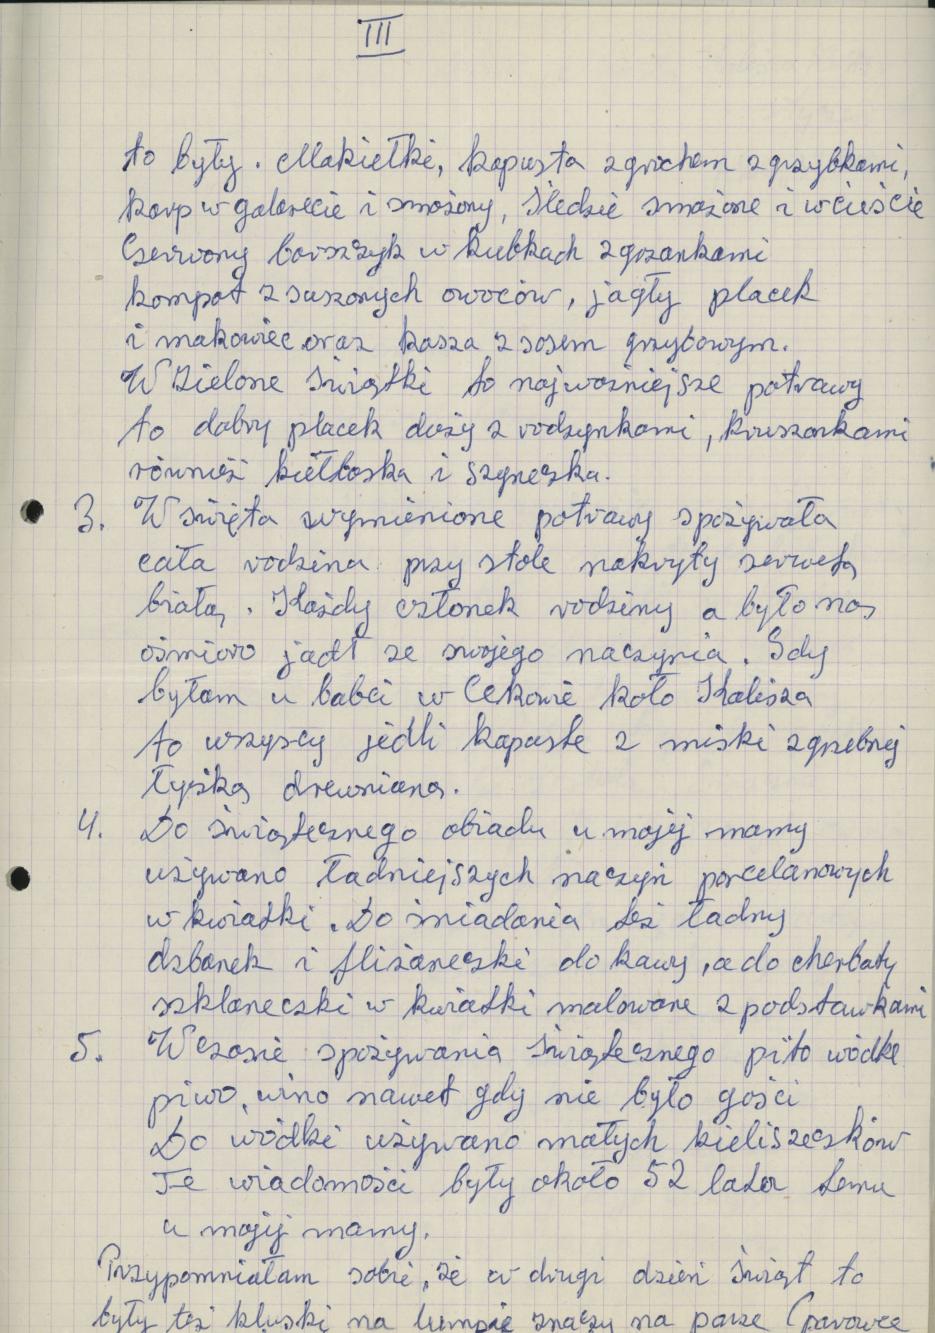 III
to były. Makiełki, kapusta z grochem z grzybkami,
karp w galarecie i smażony, śledzie smażone i w cieście
Czerwony barszczyk w kubkach z grzankami
kompot z suszonych owoców, jagły placek
i makowiec oraz kasza z sosem grzybowym.
W Zielone Świątki to najważniejsze potrawy
to dobry placek duży z rodzynkami, kruszonkami
również kiełbaska i szyneczka.
3. W święta wymienione potrawy spożywała
cała rodzina przy stole nakryty serwetą
białą. Każdy członek rodziny a było nas
ośmioro jadł ze swojego naczynia. Gdy
byłam u babci w Cekowie koło Kalisza
to wszyscy jedli kapustę z miski zgrzebnej
łyżką drewnianą.
4. Do świątecznego obiadu u mojej mamy
używano ładniejszych naczyń porcelanowych
w kwiatki. Do śniadania też ładny
dzbanek i filiżaneczki do kawy, a do cherbaty
szklaneczki w kwiatki malowane z podstawkami
5. W czasie spożywania świątecznego pito wódkę
piwo, wino nawet gdy nie było gości
Do wódki używano małych kieliszeczków
Te wiadomości były około 52 lata temu
u mojej mamy.
Przypomniałam sobie, że w drugi dzień świąt to
były też kluski na lumpie znaczy na parze (parowce